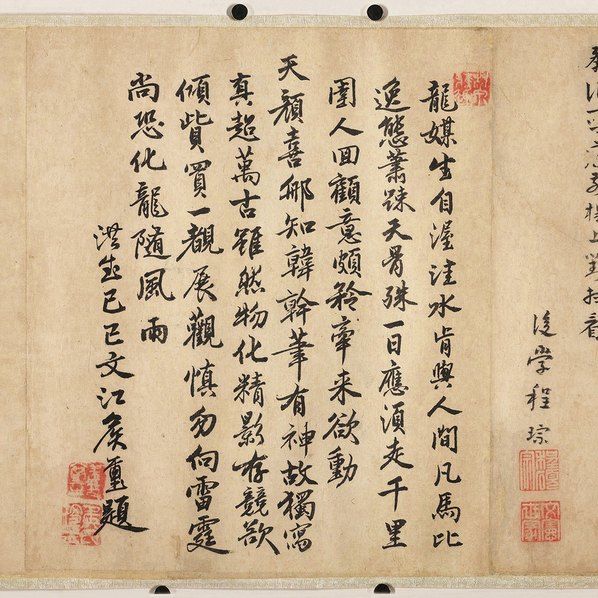 後學程琮
龍媒生自渥洼水肯與人間凡馬比
逸態蕭疎天骨殊一日應須走千里
圉人回顧意頗矜牽来欲動
天顏喜那知韓幹筆有神故獨寫
真超萬古雖然物化精影存競欲
傾貲買一覩展觀慎勿向雷霆
尚恐化龍隨風雨
洪武己巳文江侯題